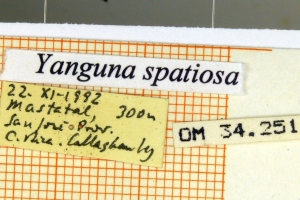 Yanguna spatiosa
22. XI-1992
Mastatal 300m
San José Prov.
C. Rica. Callaghan leg
OM 34.251